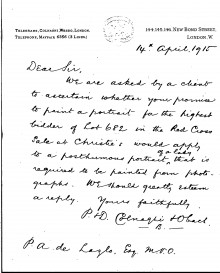 TELEGRAMS, COLNAGHI, WESDO, LONDON.
TELEPHONE, MAYFAIR 6356 (3 LINES.)
144,145,146, NEW BOND STREET,
LONDON, W.
14th April, 1915
Dear Sir,
We are asked by a client
to ascertain whether your promise
to paint a portrait for the highest
bidder of Lot 682 in the Red Cross
Sale at Christie's would apply
of a lady
to a posthumous portrait, that is
required to be painted from photo-
graphs. We should greatly esteem
a reply. Yours faithfully.
P & D. Colnaghi & Obach
P A. de Laszlo, Esq M.V.O.